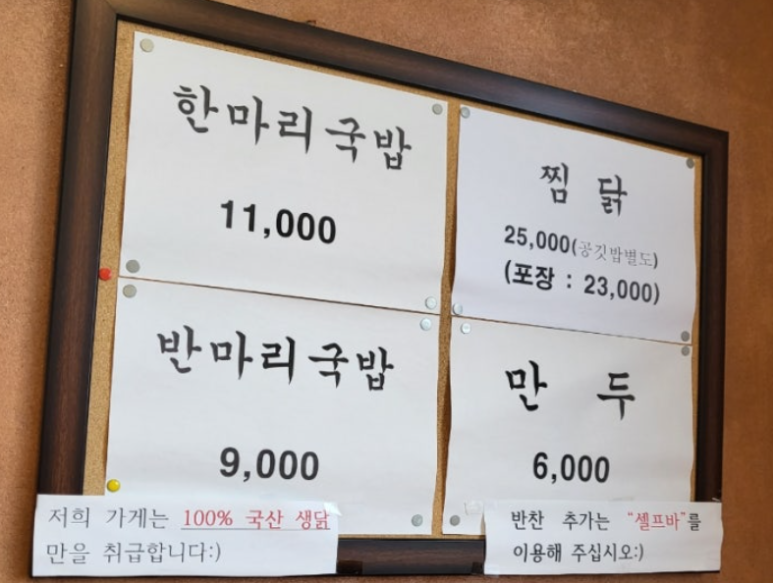 한마리국밥
11,000
찜 닭
25,000(공깃밥별도)
(포장 : 23,000)
반마리국밥
9,000
만 두
6,000
저희 가게는 100% 국산 생닭
만을 취급합니다:)
반찬 추가는 "셀프바"를
이용해 주십시오:)